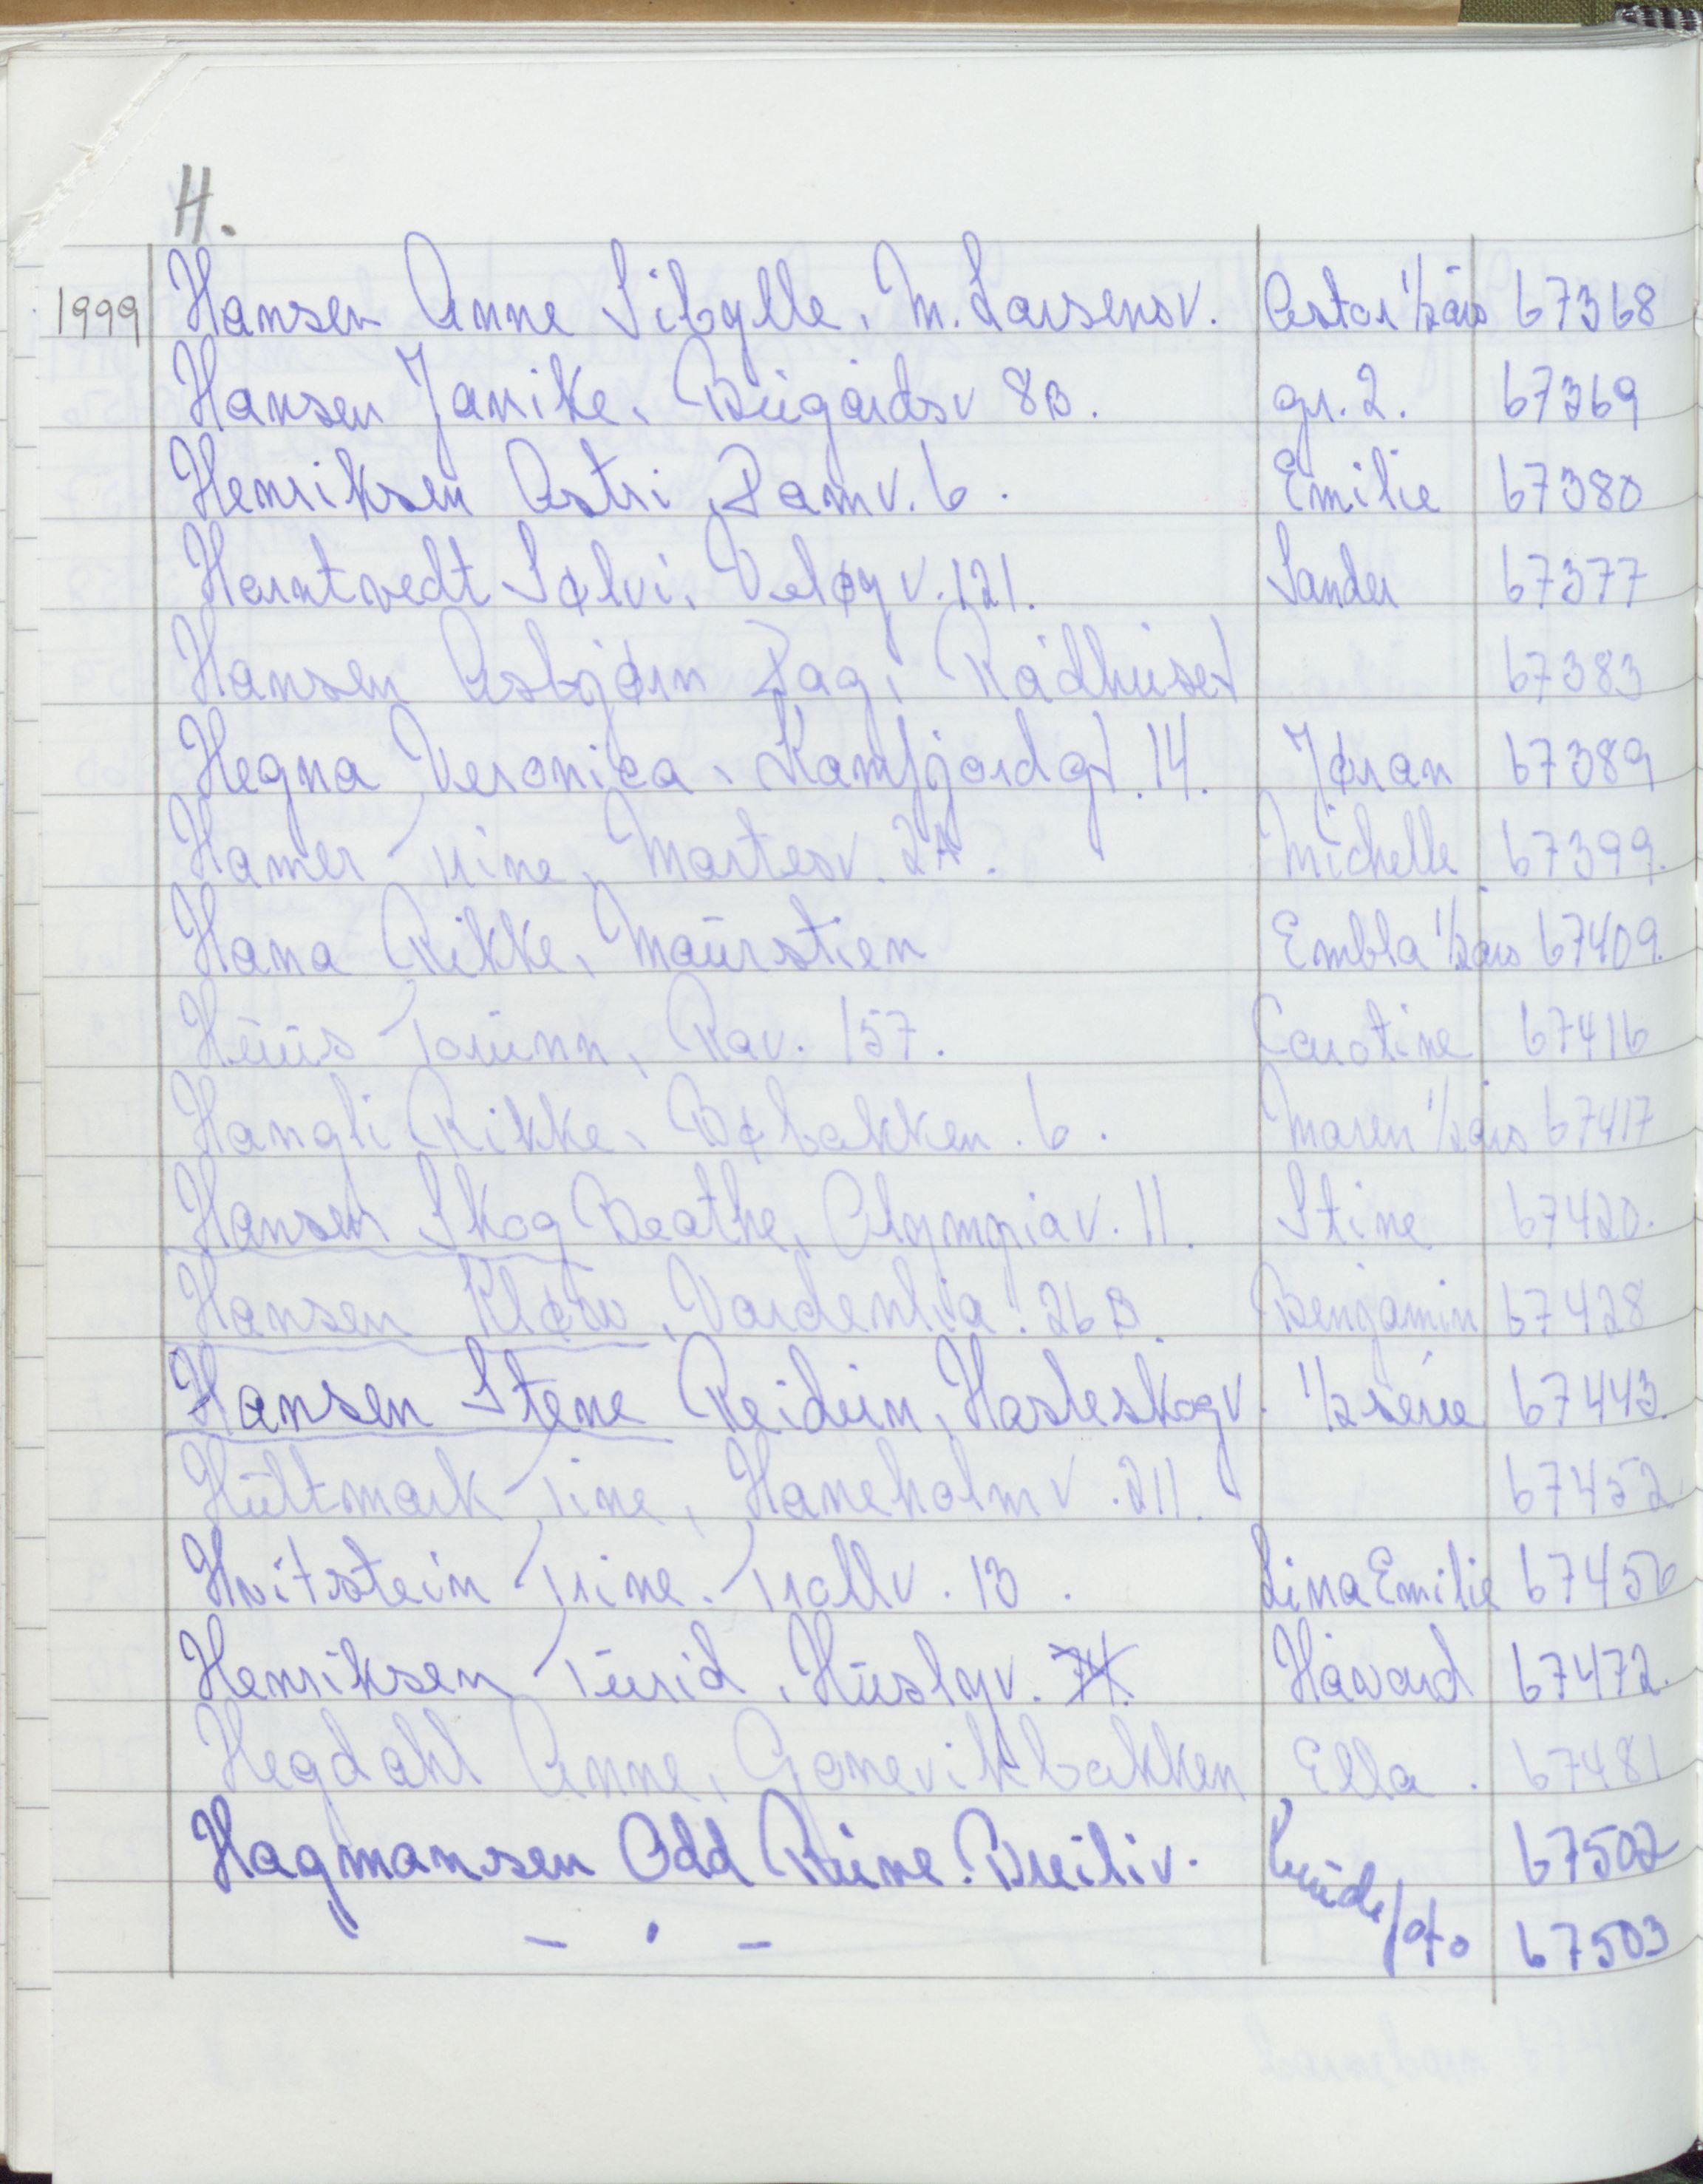 H.
1999 Hansen Anne Sibylle, M. Larsensv. Astor 1/2 års 67368
Hansen Janike, Bugårdsv 8B. gr. 2. 67369
Henriksen Astri, Damv. 6. Emilie 67380
Harntvedt Sølvi, Veløy v. 121. Sander 67377
Hansen Asbjørn Dag, Rådhuset 67383
Hegna Veronica, Kamfjordgt. 14. Jøran 67389
Hamer Trine, Martesv. 2A. Michelle 67399.
Hana Rikke, Maurstien Embla 1/2 års 67409.
Huus Torunn, Rav. 157. Carotine 67416
Hangli Rikke, Bøbakken. 6. Maren 1/2 års 67417
Hansen Skog Beathe, Olympiav. 11. Stine 67420.
Hansen Kløw, Vardenlia. 26B. Benjamin 67428
Hansen Stene Reidun, Hasleskogv. 1/2 serie 67443.
Hultmark Tine, Haneholmv. 211. 67452
Hvitstein Trine. Trollv. 13. Lina Emilie 67456
Henriksen Turid, Husbyv. 74. Håvard 67472.
Hegdahl Anne, Gonevikbakken Ella. 67481
Hagmansen Odd Rune. Breiliv. 67502
— ' — 67503